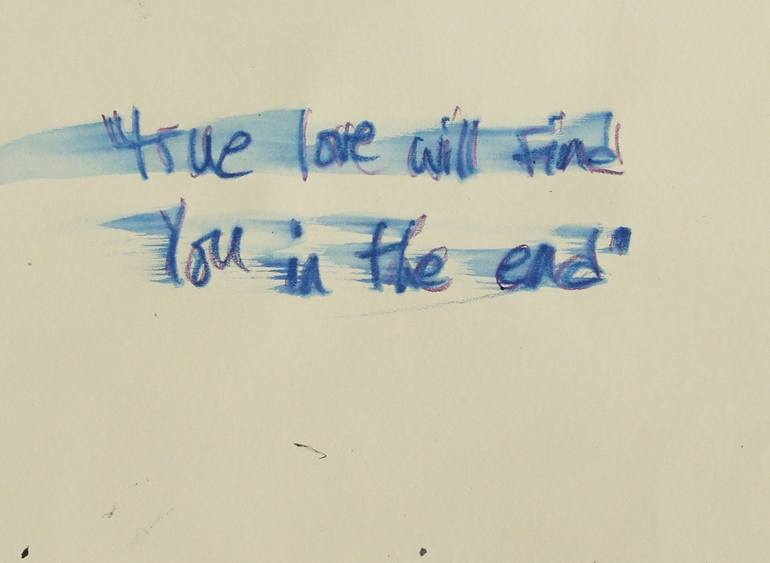 "true love will find
You in the end"